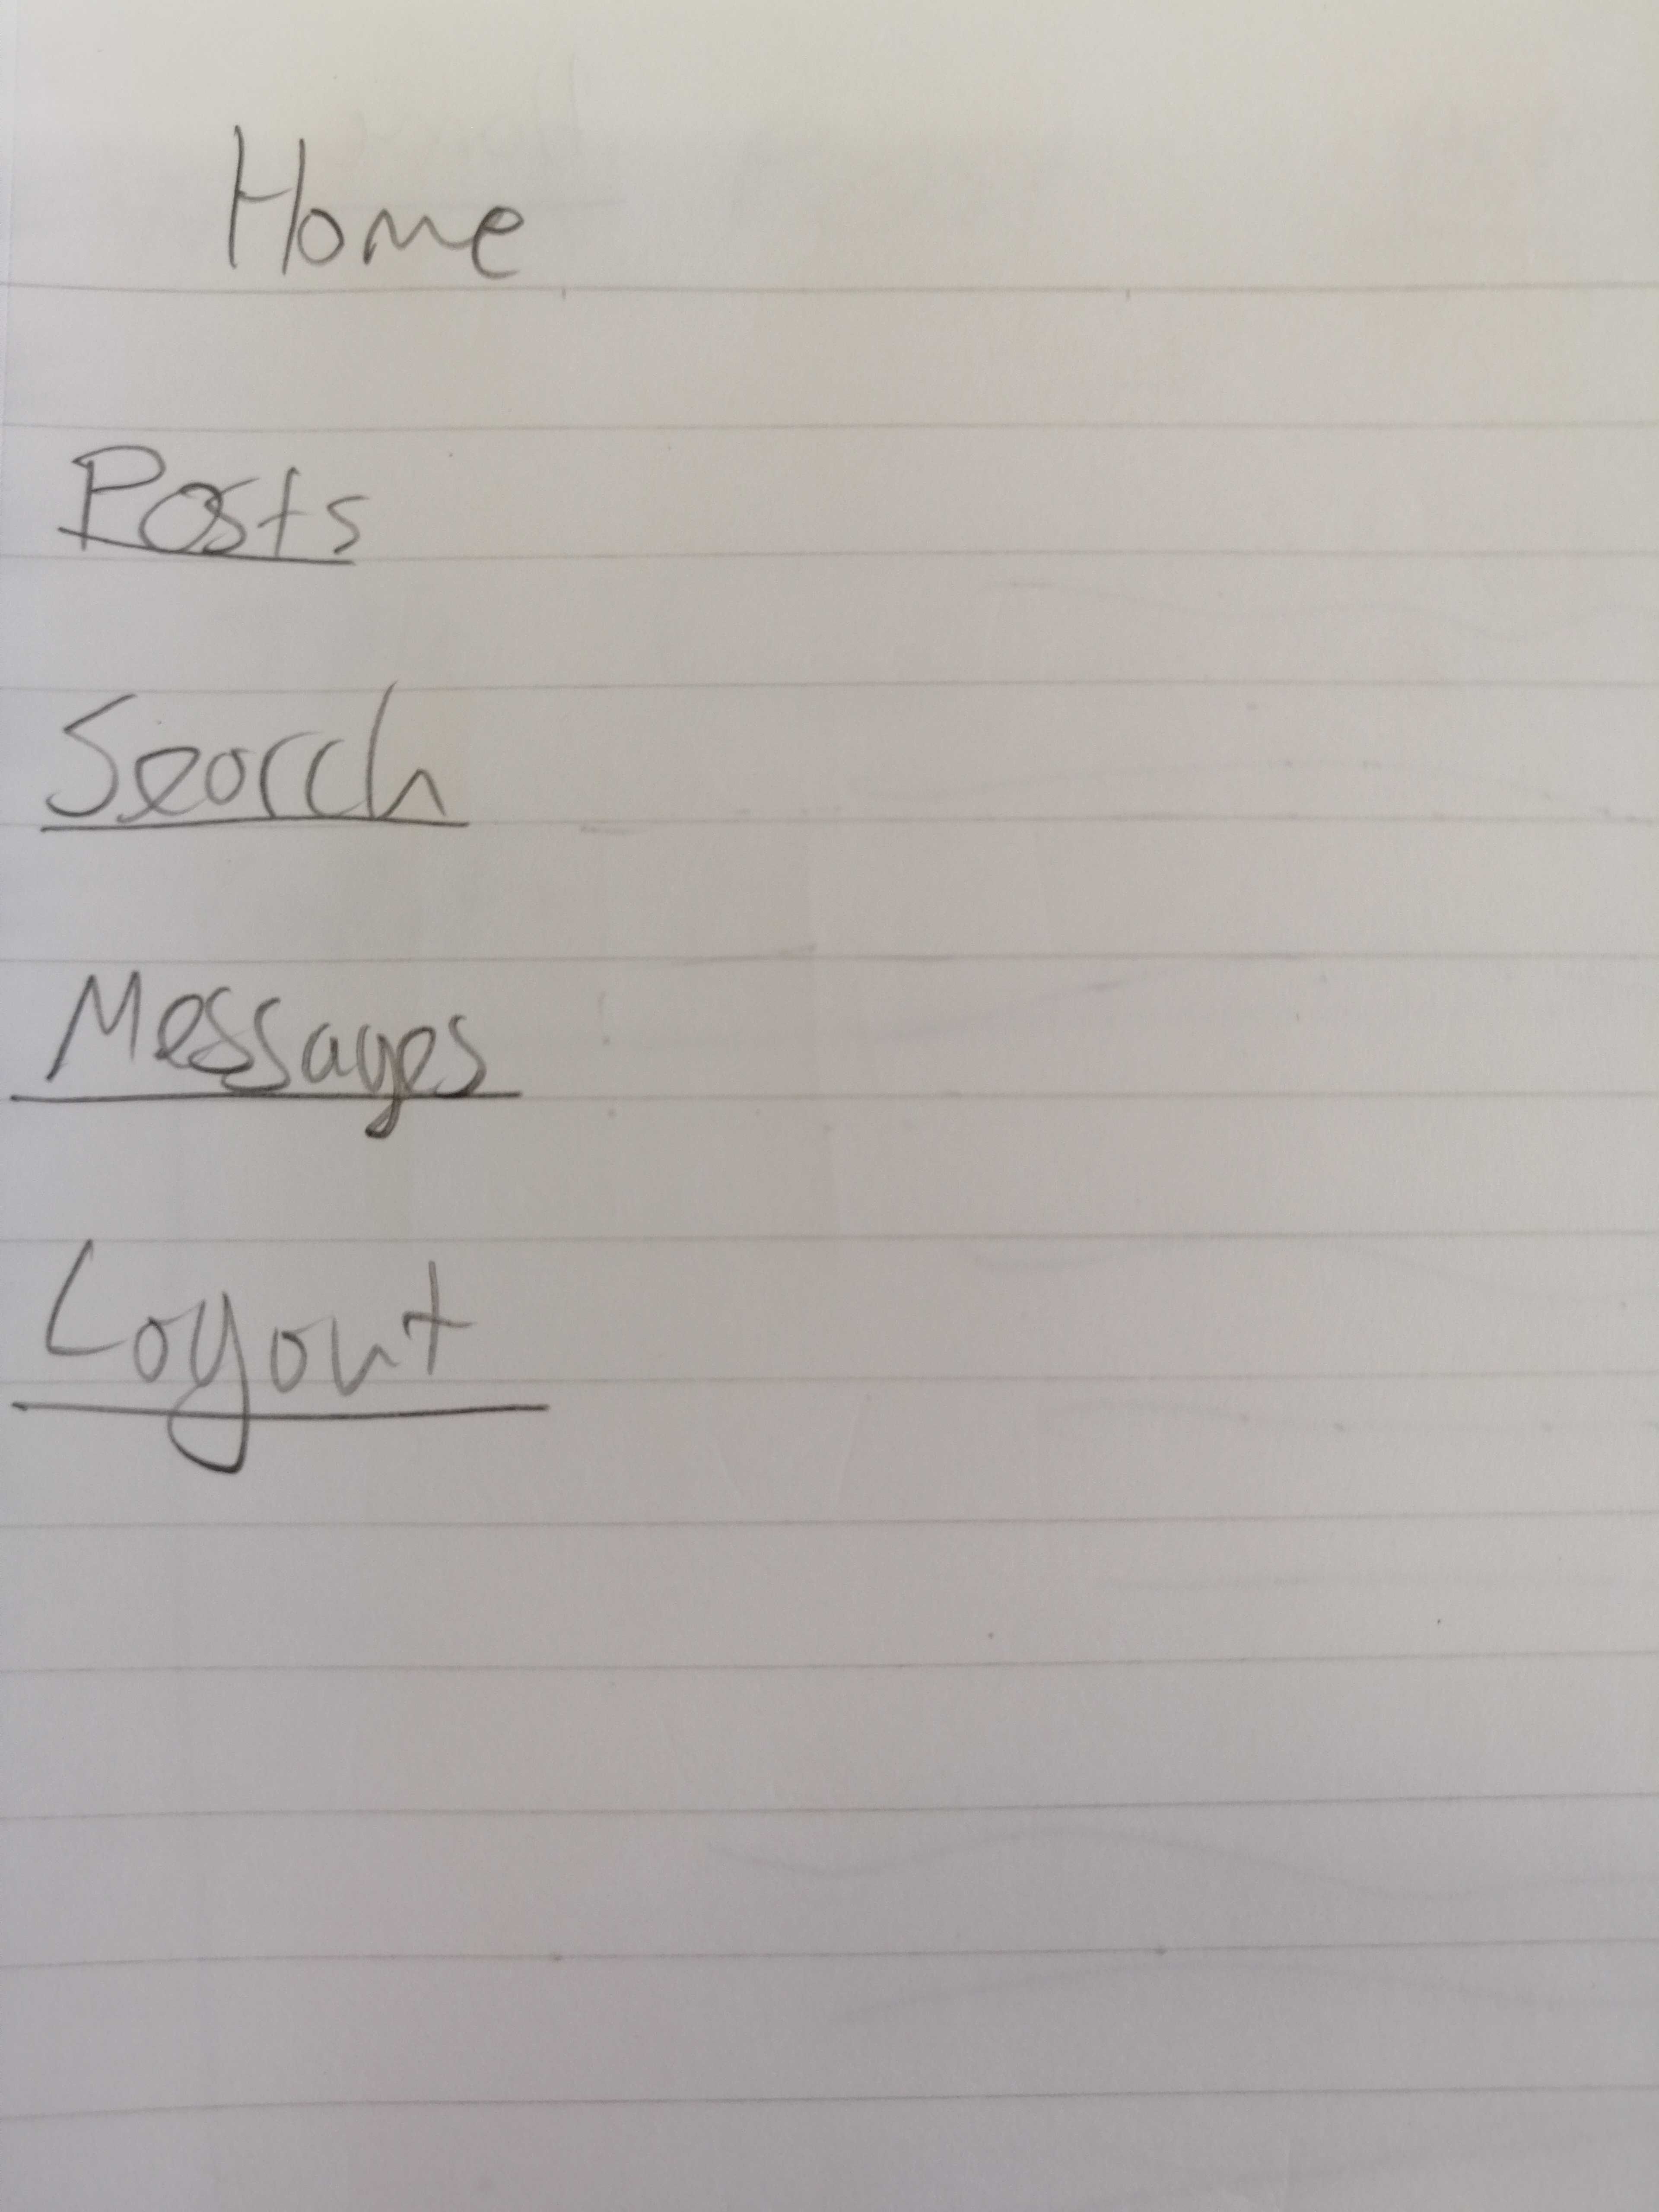 Home
Posts
Search
Messages
Logout